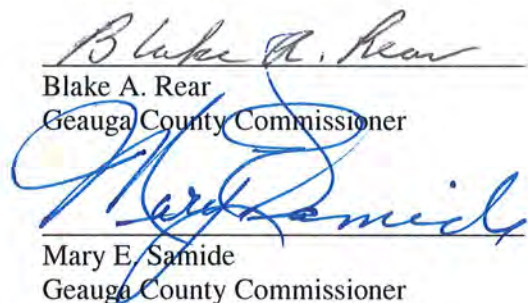 Blake A. Rear
Blake A. Rear
Geauga County Commissioner
Mary Samide
Mary E. Samide
Geauga County Commissioner